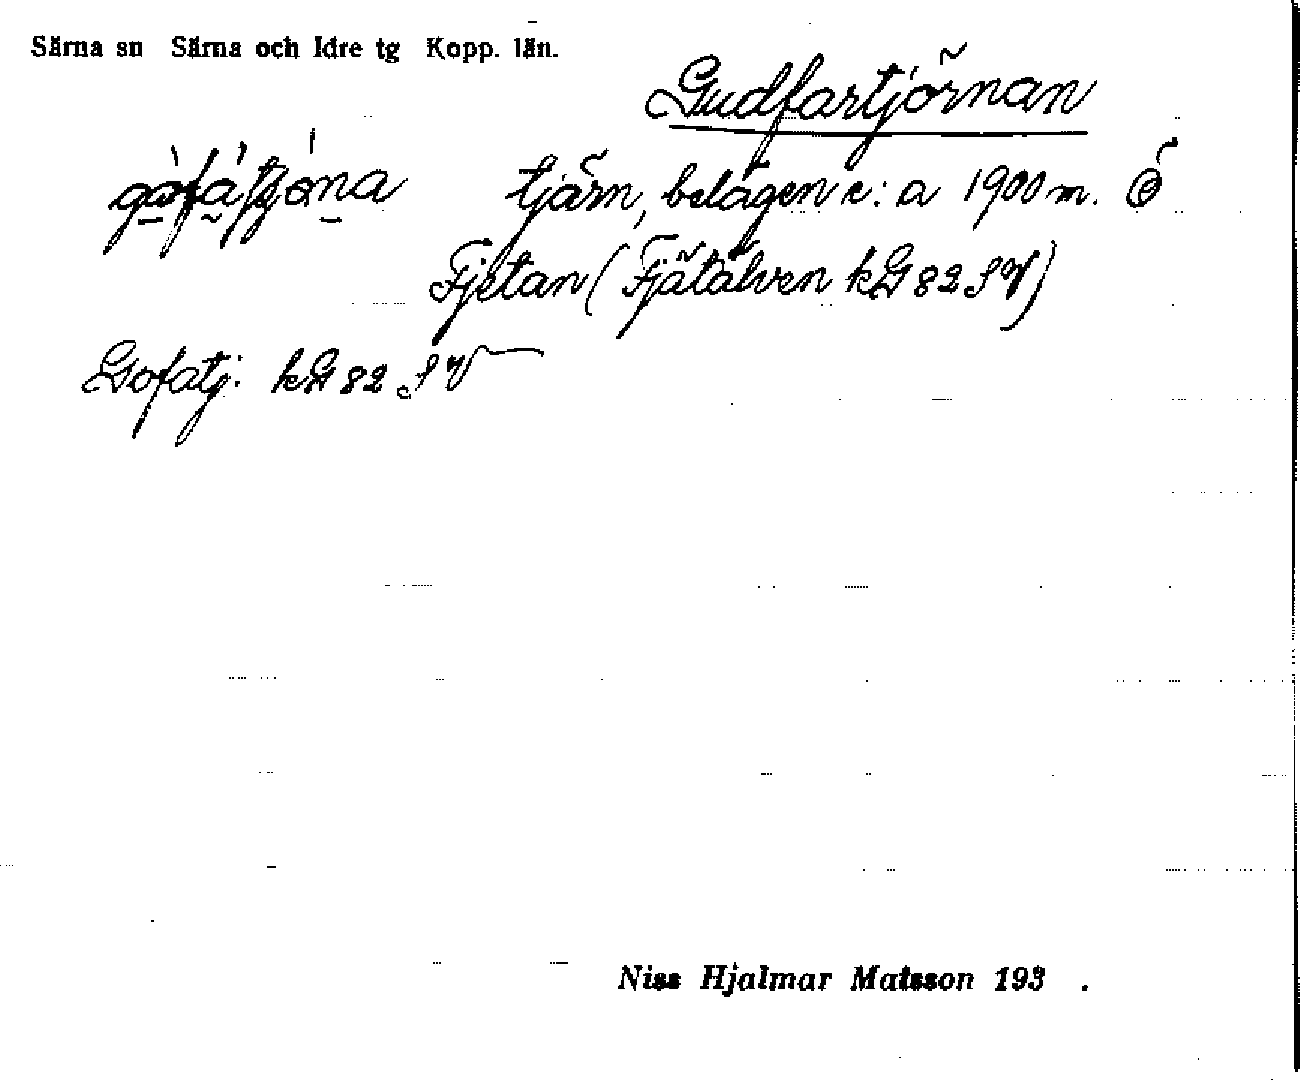 Särna sn Särna och Idre tg Kopp. län.
Gudfartjörnan
tjärn, belägen c:a 1900 m. Ö
Fjetan (Fjätälven kG 82 SV)
Gofatj: kG 82 SV
Niss Hjalmar Matsson 193 .